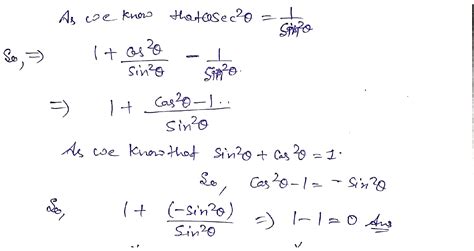 As we know that cosec²θ = 1/sin²θ
So, ⇒ 1 + cos²θ/sin²θ - 1/sin²θ.
⇒ 1 + cos²θ-1../sin²θ
As we know that sin²θ + cos²θ = 1.
So, cos²θ-1 = - sin²θ
So, 1 + (-sin²θ)/sin²θ ⇒ 1-1 = 0 Ans